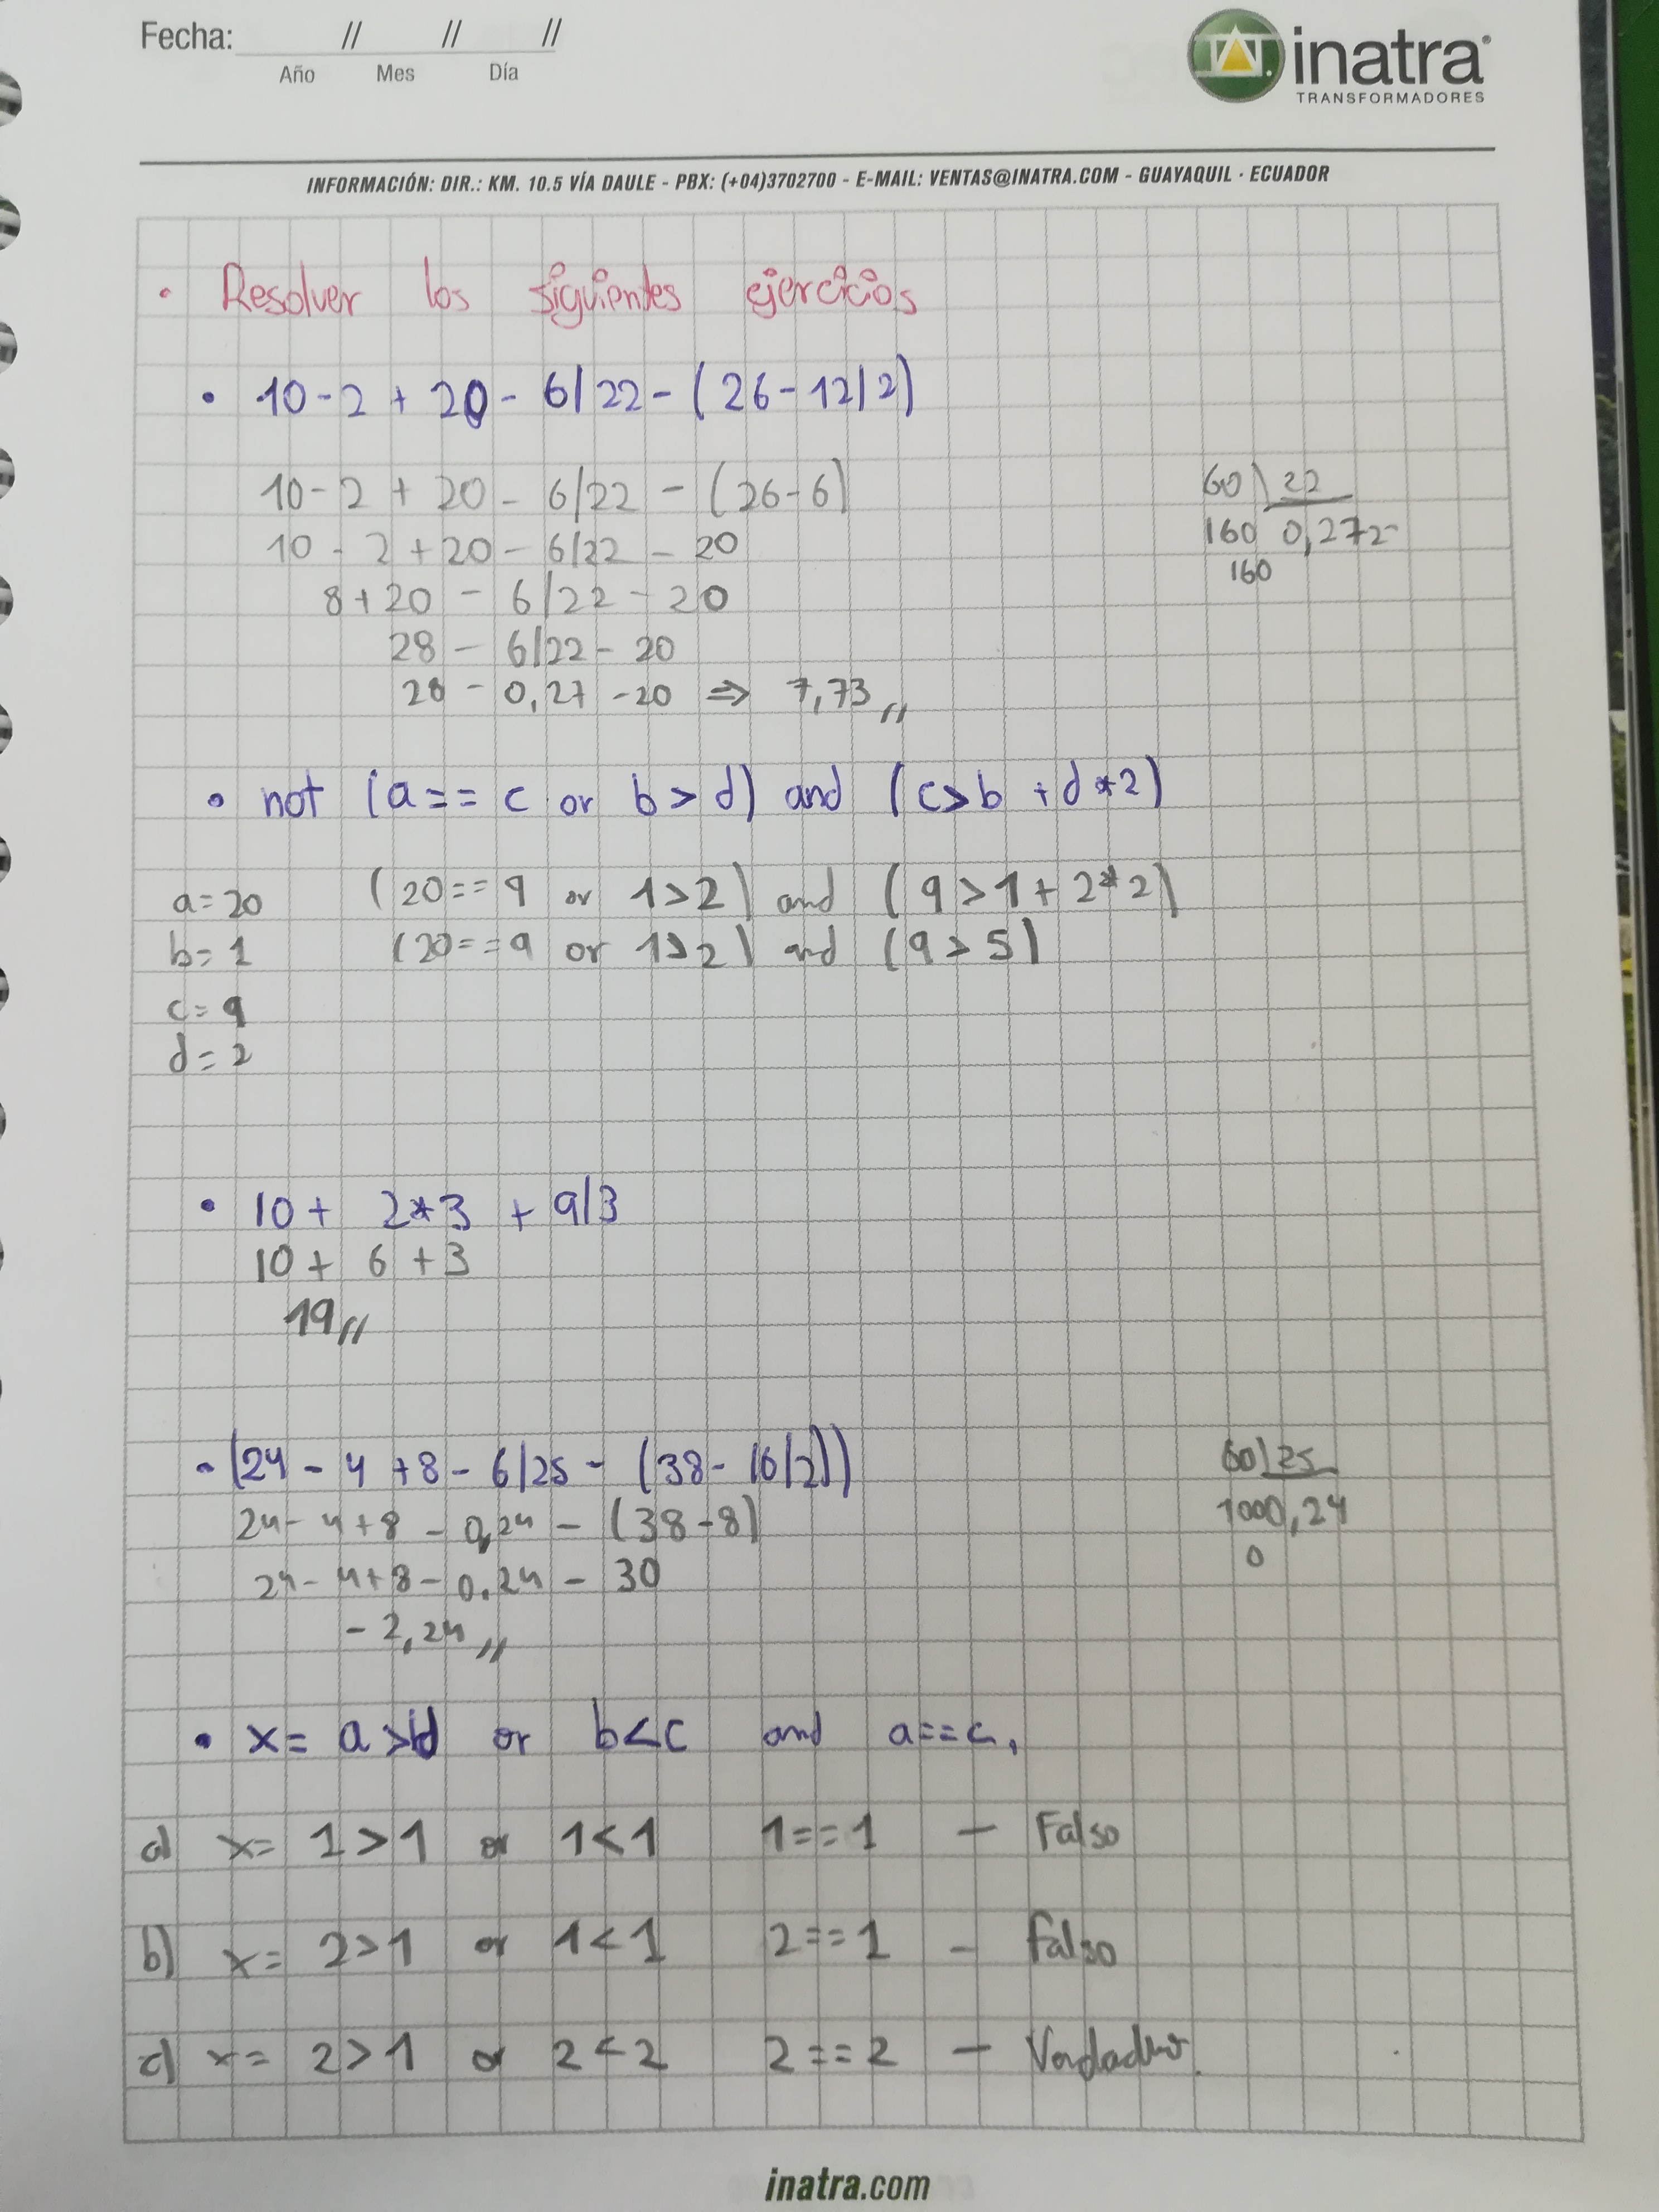 Fecha: // // //
Año Mes Día
inatra
TRANSFORMADORES
INFORMACIÓN: DIR.: KM. 10.5 VÍA DAULE - PBX: (+04)3702700 - E-MAIL: VENTAS@INATRA.COM - GUAYAQUIL - ECUADOR
• Resolver los siguientes ejercicios
• 10-2 + 20 - 6/22 - (26-12/2)
10-2 + 20 - 6/22 - (26-6)
10 - 2 + 20 - 6/22 - 20
8+20 - 6/22 - 20
28 - 6/22 - 20
28 - 0,27 - 20 ⇒ 7,73 //
60 22
160 0,272
160
• not (a == c or b > d) and (c > b + d * 2)
a = 20 (20 == 9 or 1 > 2) and (9 > 1 + 2*2)
b = 1 (20 == 9 or 1 > 2) and (9 > 5)
c = 9
d = 2
• 10 + 2*3 + 9/3
10 + 6 + 3
19 //
• (24 - 4 + 8 - 6/25 - (38 - 16/2))
24 - 4 + 8 - 0,24 - (38 - 8)
24 - 4 + 8 - 0,24 - 30
- 2,24 //
60 25
100 0,24
0
• x = a > b or b < c and a == c,
a) x = 1 > 1 or 1 < 1 1 == 1 - Falso
b) x = 2 > 1 or 1 < 1 2 == 1 - Falso
c) x = 2 > 1 or 2 < 2 2 == 2 - Verdadero.
inatra.com